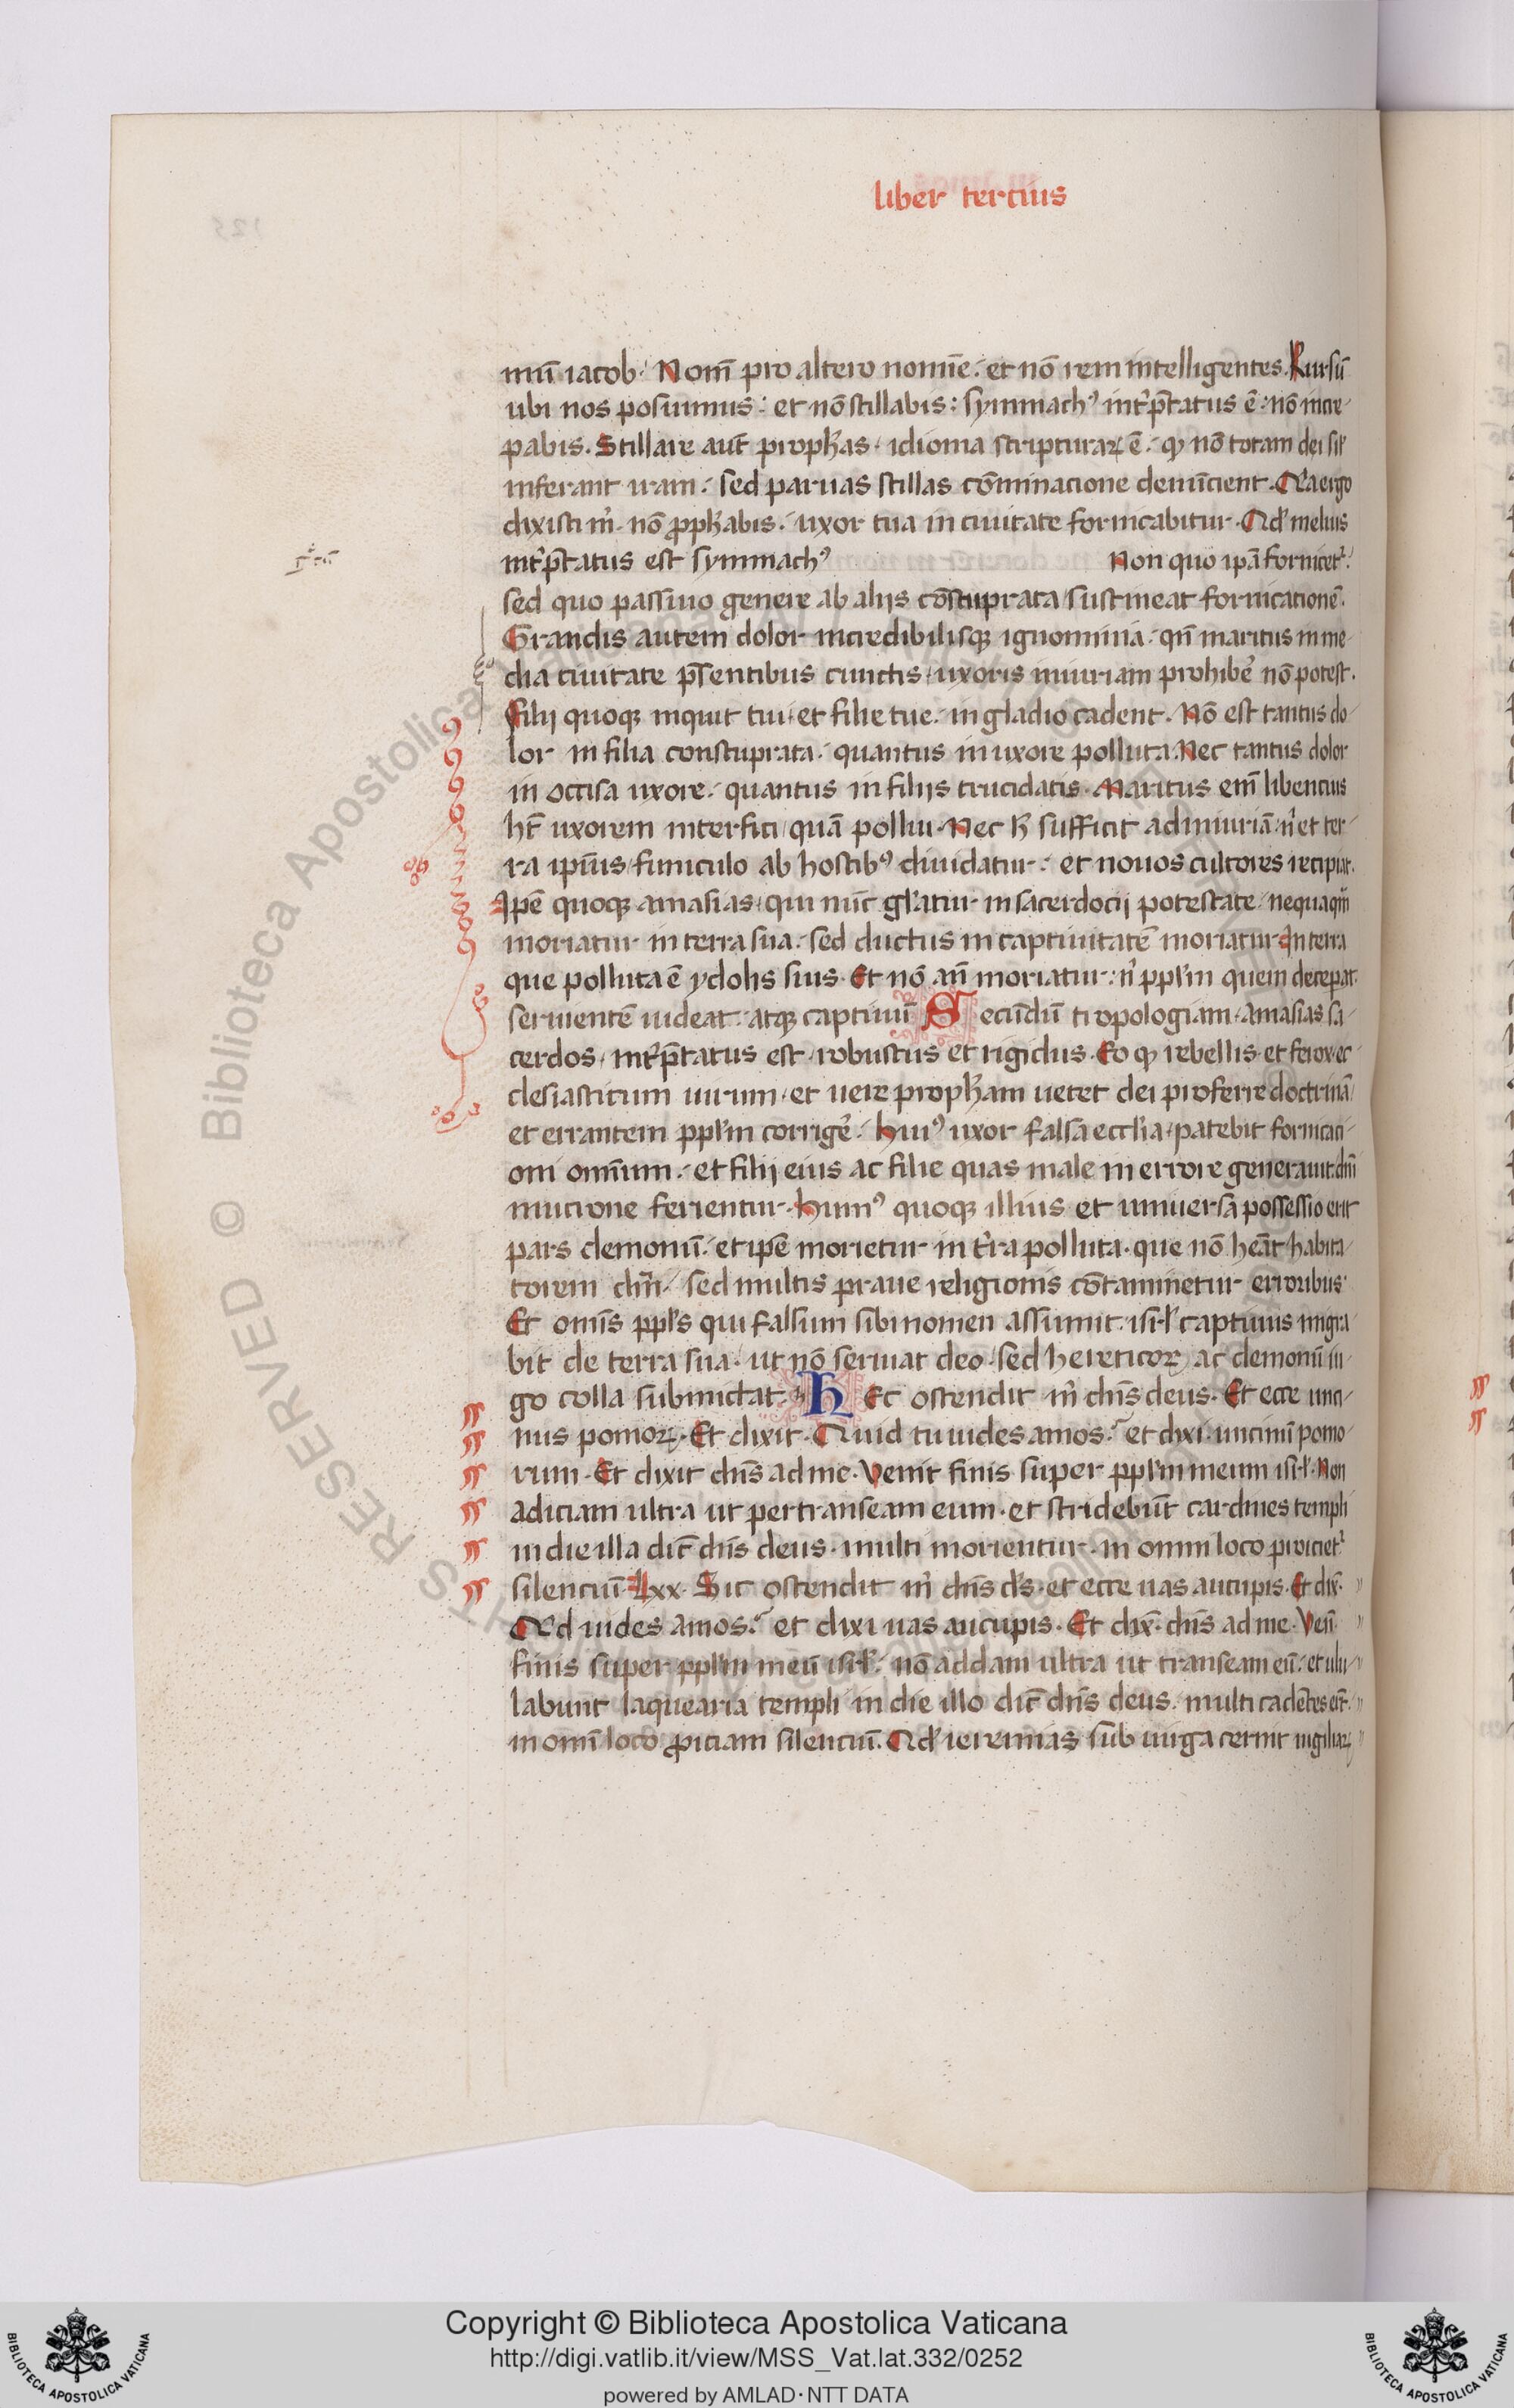 liber tercius
mū iacob. Nom̄ pro altero nomīe. et nō rem intelligentes. Rursū
ubi nos posuimus. et nō stillabis: symmachꝰ int̉p̄tatus ē. nō incre
pabis. Stillare aut̄ prophās. idioma scripturaꝝ ē. qꝫ nō totam dei sil̉
inferant iram. sed paruas stillas cōminacione denūcient. Qa ergo
dixisti m̉. nō ꝓph̄abis. uxor tua in ciuitate fornicabitur. Qd̓ melius
int̉p̄tatus est symmachꝰ Non quo ip̄a fornicet᷑.
sed quo passiuo genere ab alijs cōstuprata sustineat fornicationē.
Grandis autem dolor incredibilisqꝫ ignominia. qn̄ maritus in me
dia ciuitate p̄sentibus cunctis uxoris iniuriam prohibe̓ nō potest.
Filij quoqꝫ inquit tui et filie tue. in gladio cadent. Nō est tantus do
lor in filia constuprata. quantus in uxore polluta. Nec tantus dolor
in occisa uxore. quantus in filijs trucidatis. Maritus em̄ libencius
hēt uxorem interfici quā pollui. Nec h̄ sufficit ad iniuriā. n̉ et ter
ra ip̄ius funiculo ab hostibꝰ diuidatur. et nouos cultores recipiat.
Ip̄e quoqꝫ amasias qui nūc gl̄atur in sacerdocij potestate nequaqm̄
moriatur in terra sua. sed ductus in captiuitatē moriatur in terra
que polluta ē ydolis suis. Et nō an̄ moriatur. n̉ ppl̄m quem decepat
seruientē uideat. atqꝫ captiuū. Secūdū tropologiam. amasias sa
cerdos. int̉p̄tatus est robustus et rigidus. Eo qꝫ rebellis et ferox. ec
clesiasticum uirum. et uere proph̄am uetet dei proferre doctrinā
et errantem ppl̄m corrige̓. Huiꝰ uxor falsa eccl̄ia. patebit fornicaci
oni omnium. et filij eius ac filie quas male in errore generauit. dn̄i
mucrone ferientur. Humꝰ quoqꝫ illius et uniuersa possessio erit
pars demonū. et ip̄e morietur in t̉ra polluta. que nō heāt habita
torem dn̄m. sed multis praue religionis cōtaminetur erroribus.
Et om̄is ppl̄s qui falsum sibi nomen assumit. isrl̄ captiuus migra
bit de terra sua. ut nō seruiat deo. sed hereticoꝝ ac demonū iu
go colla submictat. Hec ostendit m̉ dn̄s deus. Et ecce unci
nus pomoꝝ. Et dixit. Quid tu uides amos. et dixi. uncinū pomo
rum. Et dixit dn̄s ad me. Venit finis super ppl̄m meum isrl̄. Non
adiciam ultra ut pertranseam eum. et stridebūt cardines templi
in die illa dic̄ dn̄s deus. multi morientur. in omni loco proiciet᷑
silencium. Lxx. Sic ostendit m̉ dn̄s d̄s. et ecce uas aucupis. Et dix̄.
Qd uides amos. et dixi uas aucupis. Et dix̄. dn̄s ad me. Ven̄.
finis super ppl̄m meū isrl̄. nō addam ultra ut transeam eū. et ulu
labunt laquearia templi in die illo dic̄ dn̄s deus. multi cadētes er̄t.
in om̄i loco ꝓiciam silenciū. Qd̓ ieremias sub uirga cernit uigiliaꝝ
Copyright © Biblioteca Apostolica Vaticana
http://digi.vatlib.it/view/MSS_Vat.lat.332/0252
powered by AMLAD·NTT DATA